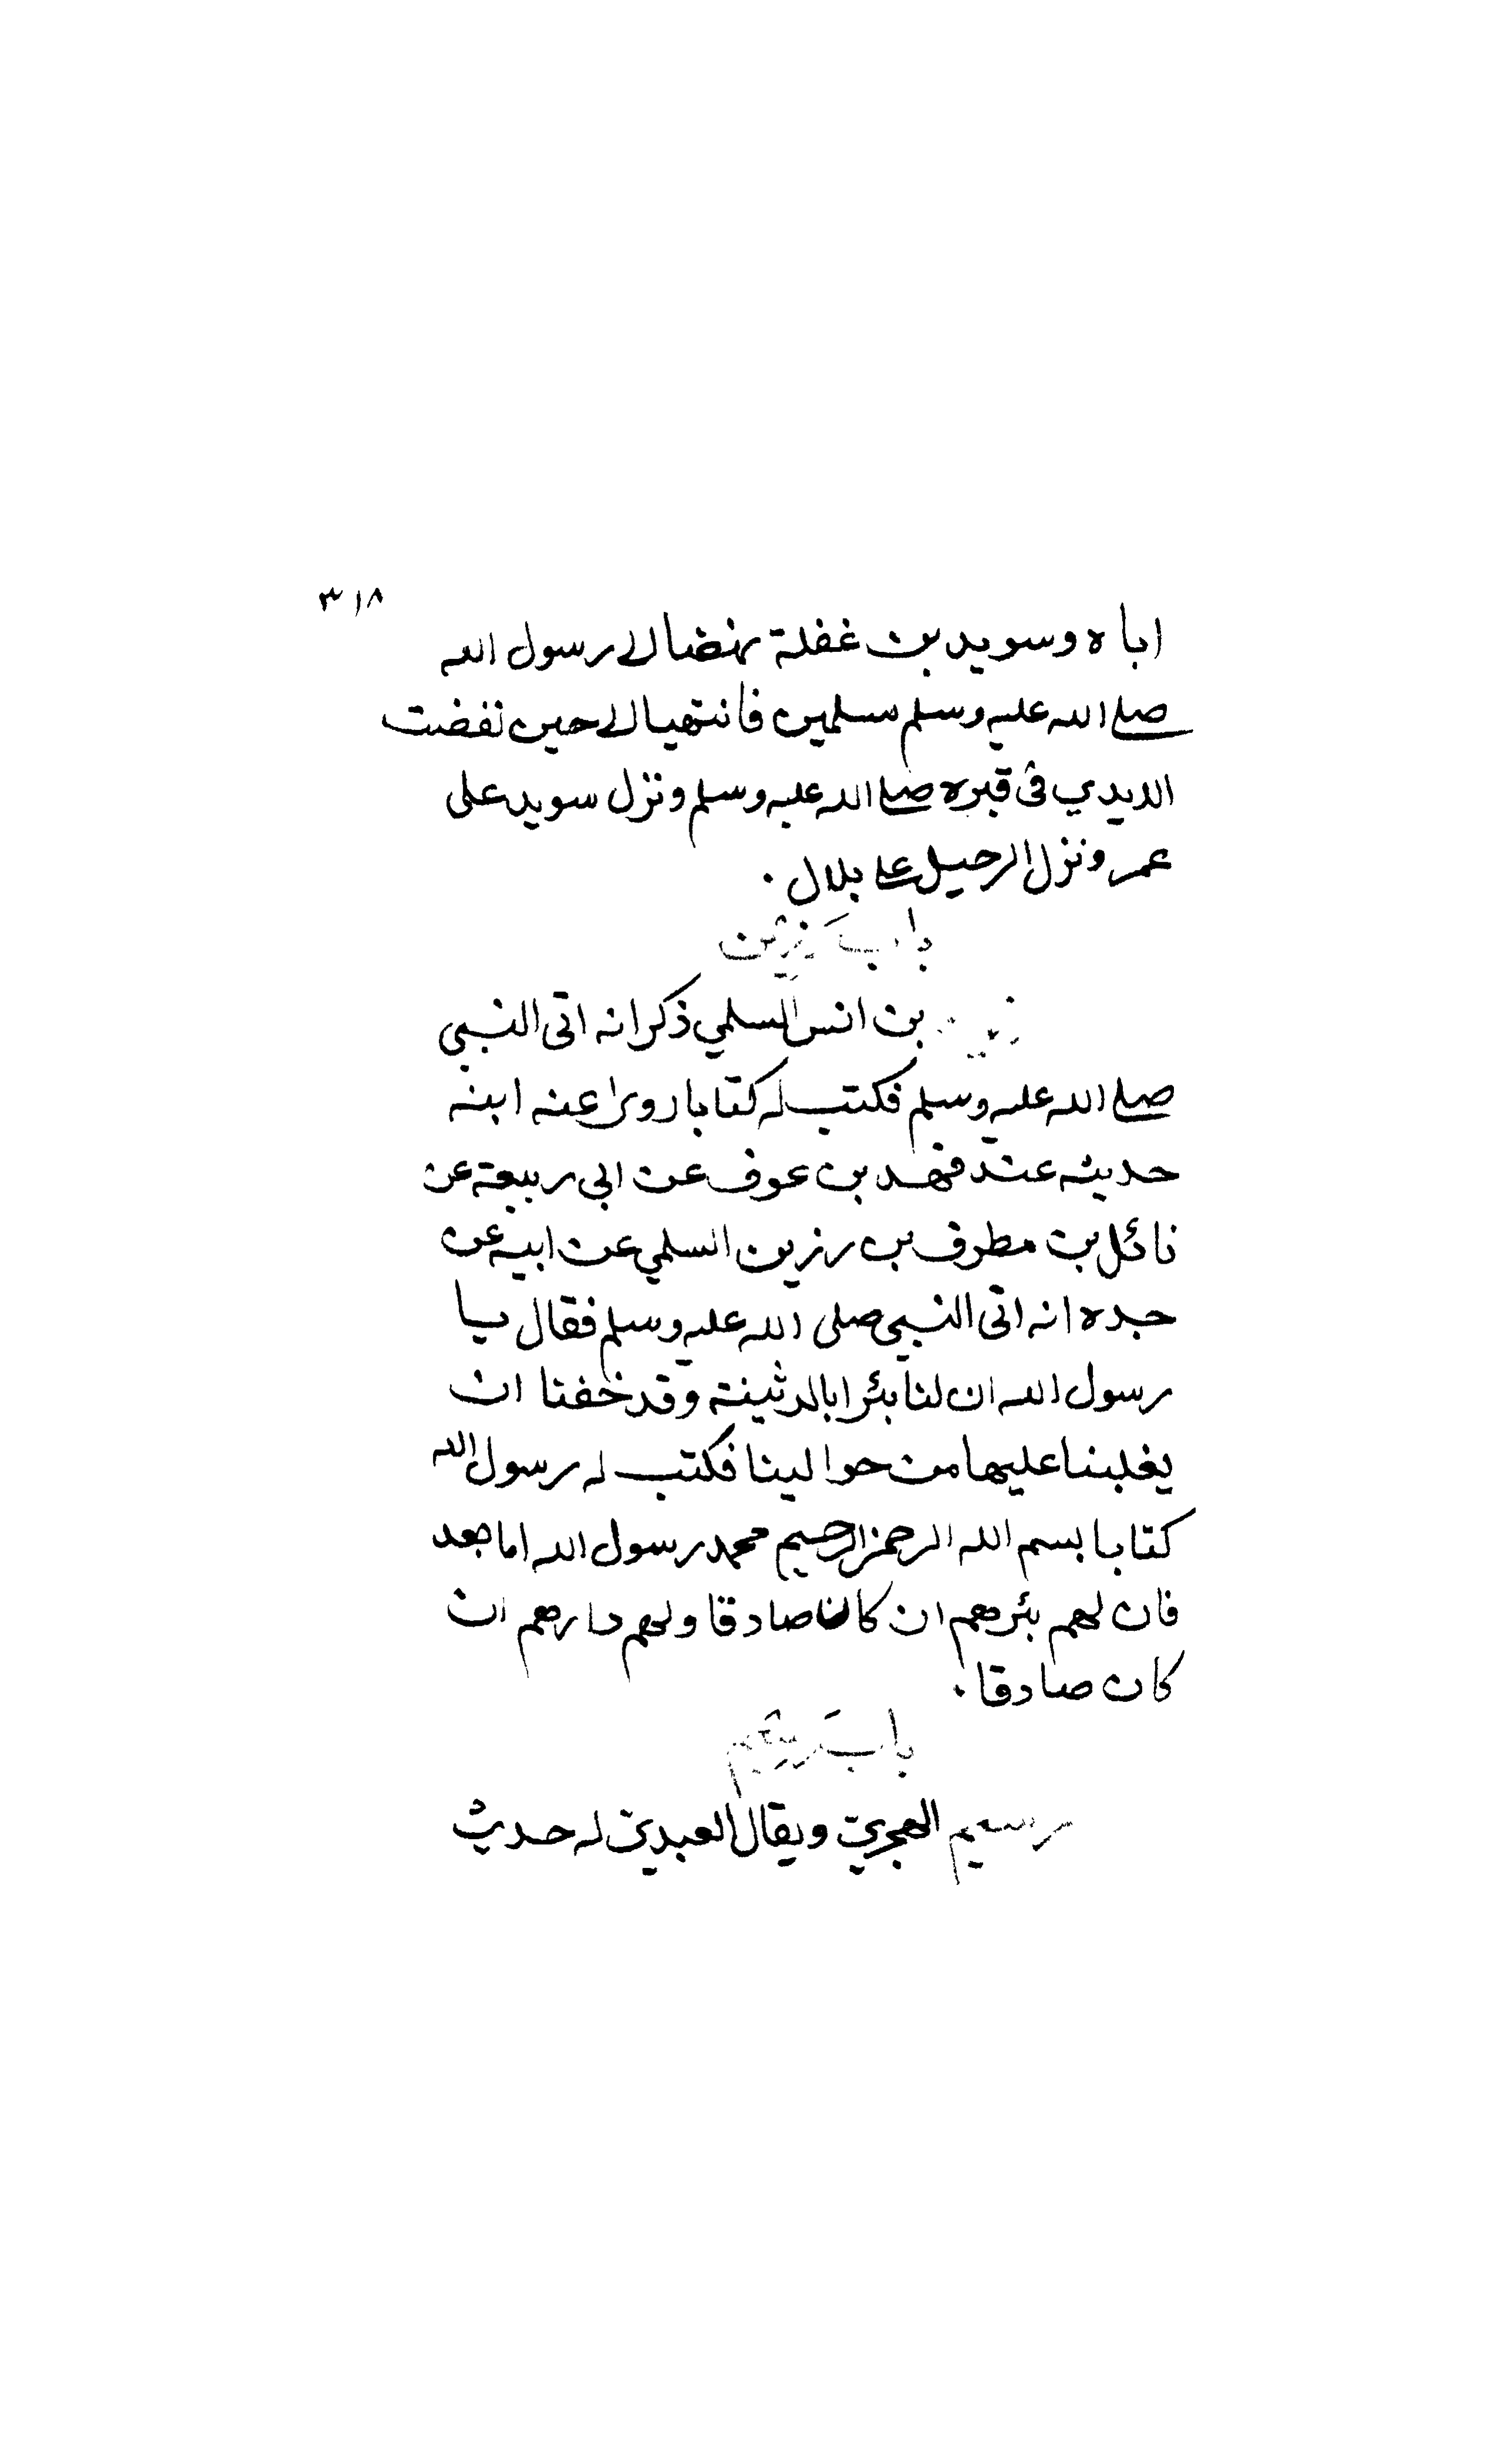 ٣١٨
اباه وسويد بن غفلة نهضا الى رسول الله
صلى الله عليه وسلم مسلمين فانتهيا اليه حين نفضت
الايدي فى قبره صلى الله عليه وسلم ونزل سويد على
عمر ونزل الرحيل على بلال .
باب رزين
رزين بن انس السلمي ذكر انه اتى النبي
صلى الله عليه وسلم فكتب له كتابا روى عنه ابنه
حديثه عند فهد بن عوف عن ابي ربيعة عن
نائل بن مطرف بن رزين السلمي عن ابيه عن
جده انه اتى النبي صلى الله عليه وسلم فقال يا
رسول الله ان لنا بئرا بالدثينة وقد خفنا ان
يغلبنا عليها من حوالينا فكتب له رسول الله
كتابا بسم الله الرحمن الرحيم محمد رسول الله اما بعد
فان لهم بئرهم ان كان صادقا ولهم دارهم ان
كان صادقا .
باب رسيم
رسيم الهجري ويقال العبدي له حديث